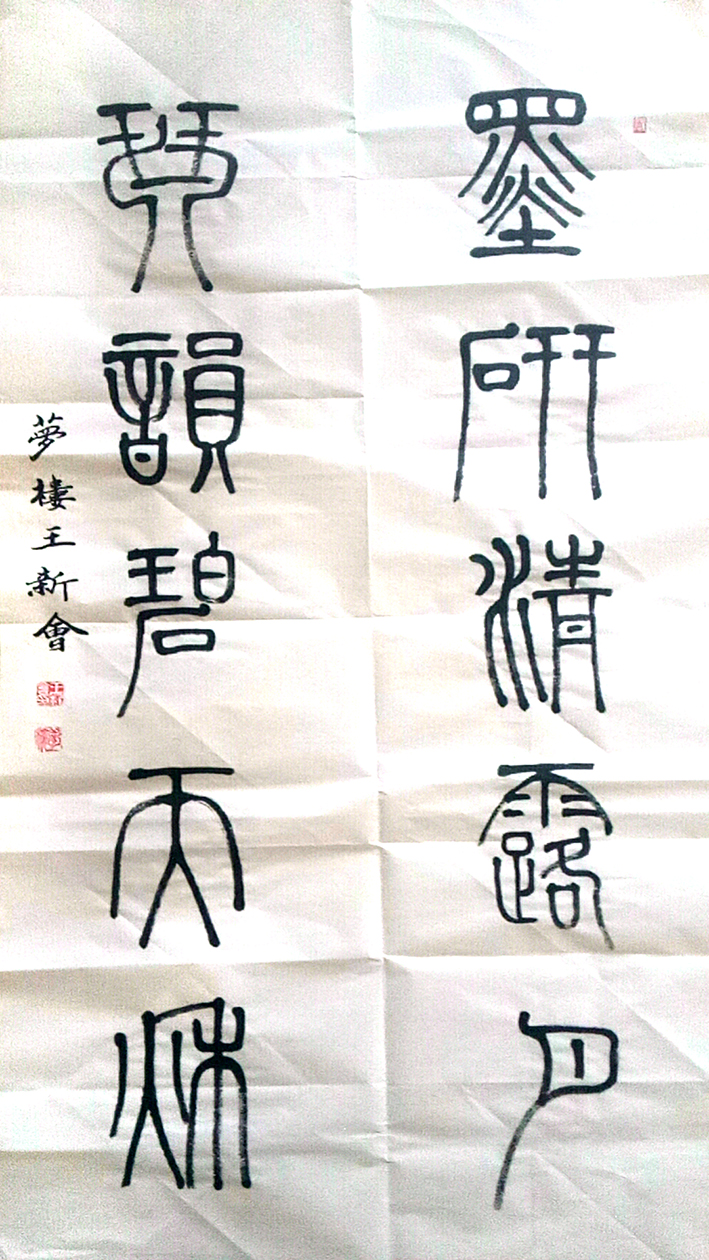 墨研清露月
琴韻碧天秌
夢樓王新會